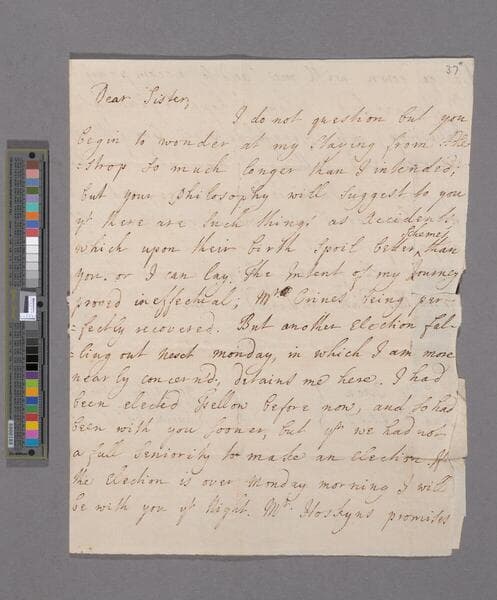 37
Dear Sister,
I do not question but you
begin to wonder at my staying from Adle-
=strop so much longer than I intended;
but your Philosophy will suggest to you
yt there are such things as Accidents
which upon their birth spoil better schemes than
you or I can lay. The Intent of my Journey
proved ineffectual; Mrs Crines being per=
=fectly recovered. But another Election fel=
=ling out next monday, in which I am more
nearly concernd, detains me here. I had
been elected Fellow before now, and so had
been with you sooner, but yt we had not
a full Seniority to make an Election. If
the Election is over Monday morning I will
be with you yt Night. Mr. Hoskyns promises